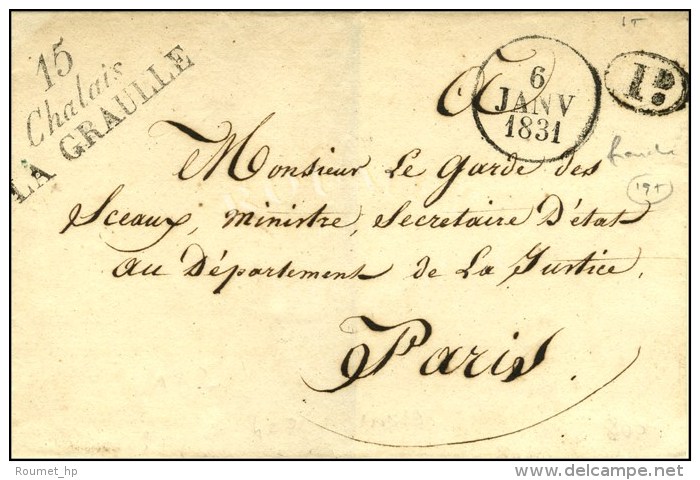 15
Chalais
LA GRAULLE
6
JANV
1831
1D
1T
franchise
19T
A
Monsieur Le Garde des
Sceaux, Ministre, Secretaire D'état
au Département de La Justice,
Paris.
Roumet_hp
www.delcampe.net